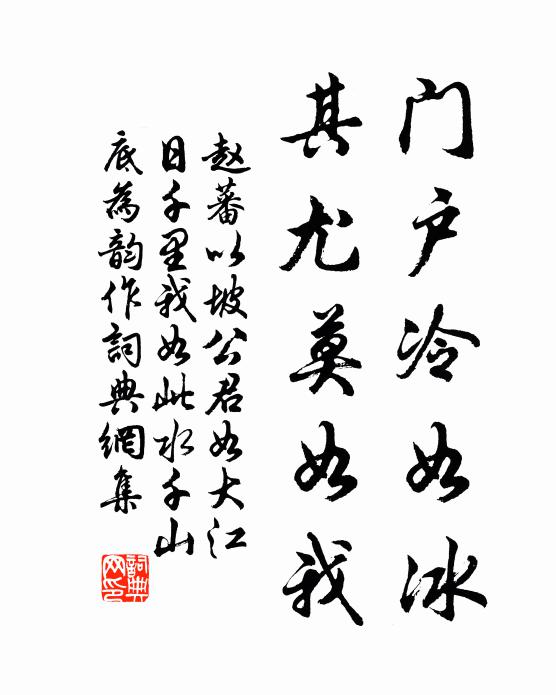 门户冷如冰
其尤莫如我
赵蕃以坡公君如大江
日千里我如此水千山
底为韵作詞典網集
詞典網印